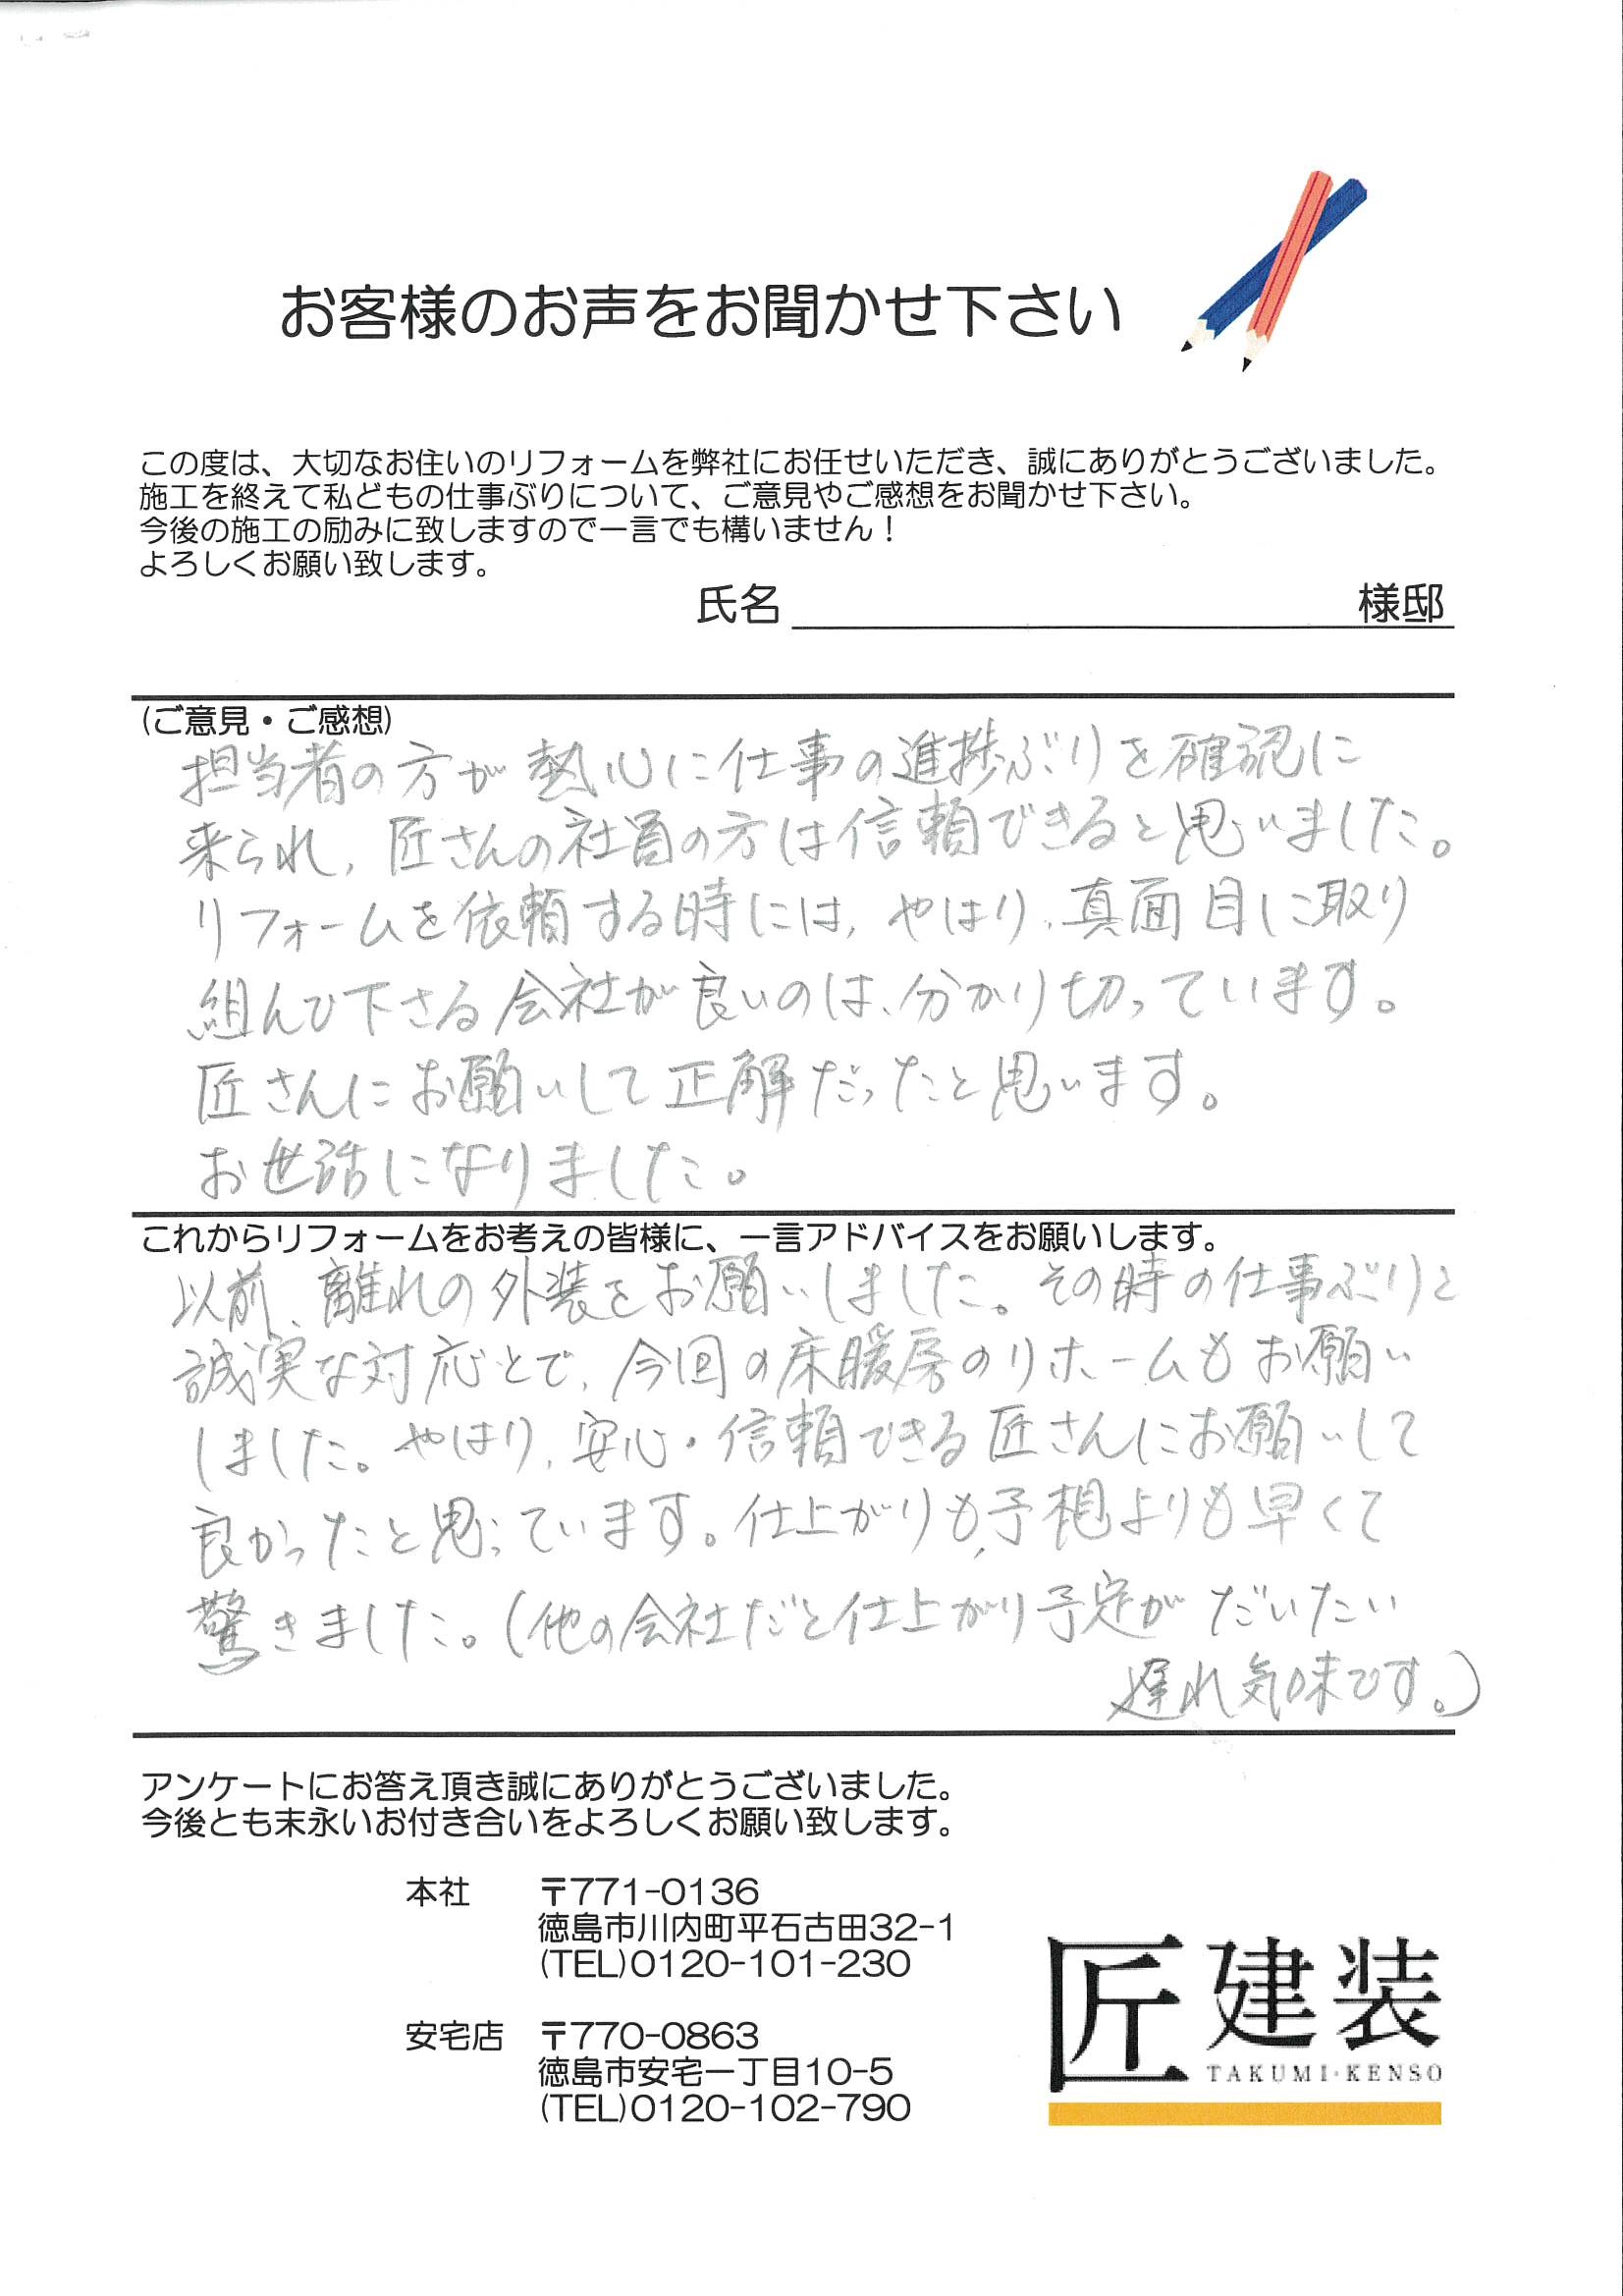 お客様のお声をお聞かせ下さい
この度は、大切なお住いのリフォームを弊社にお任せいただき、誠にありがとうございました。
施工を終えて私どもの仕事ぶりについて、ご意見やご感想をお聞かせ下さい。
今後の施工の励みに致しますので一言でも構いません！
よろしくお願い致します。
氏名 様邸
(ご意見・ご感想)
担当者の方が熱心に仕事の進捗ぶりを確認に
来られ、匠さんの社員の方は信頼できると思いました。
リフォームを依頼する時には、やはり、真面目に取り
組んで下さる会社が良いのは、分かり切っています。
匠さんにお願いして正解だったと思います。
お世話になりました。
これからリフォームをお考えの皆様に、一言アドバイスをお願いします。
以前、離れの外装をお願いしました。その時の仕事ぶりと
誠実な対応とで、今回の床暖房のリホームもお願い
しました。やはり、安心・信頼できる匠さんにお願いして
良かったと思っています。仕上がりも、予想よりも早くて
驚きました。(他の会社だと仕上がり予定がだいたい
遅れ気味です。)
アンケートにお答え頂き誠にありがとうございました。
今後とも末永いお付き合いをよろしくお願い致します。
本社 〒771-0136
徳島市川内町平石古田32-1
(TEL)0120-101-230
安宅店 〒770-0863
徳島市安宅一丁目10-5
(TEL)0120-102-790
匠建装
TAKUMI・KENSO